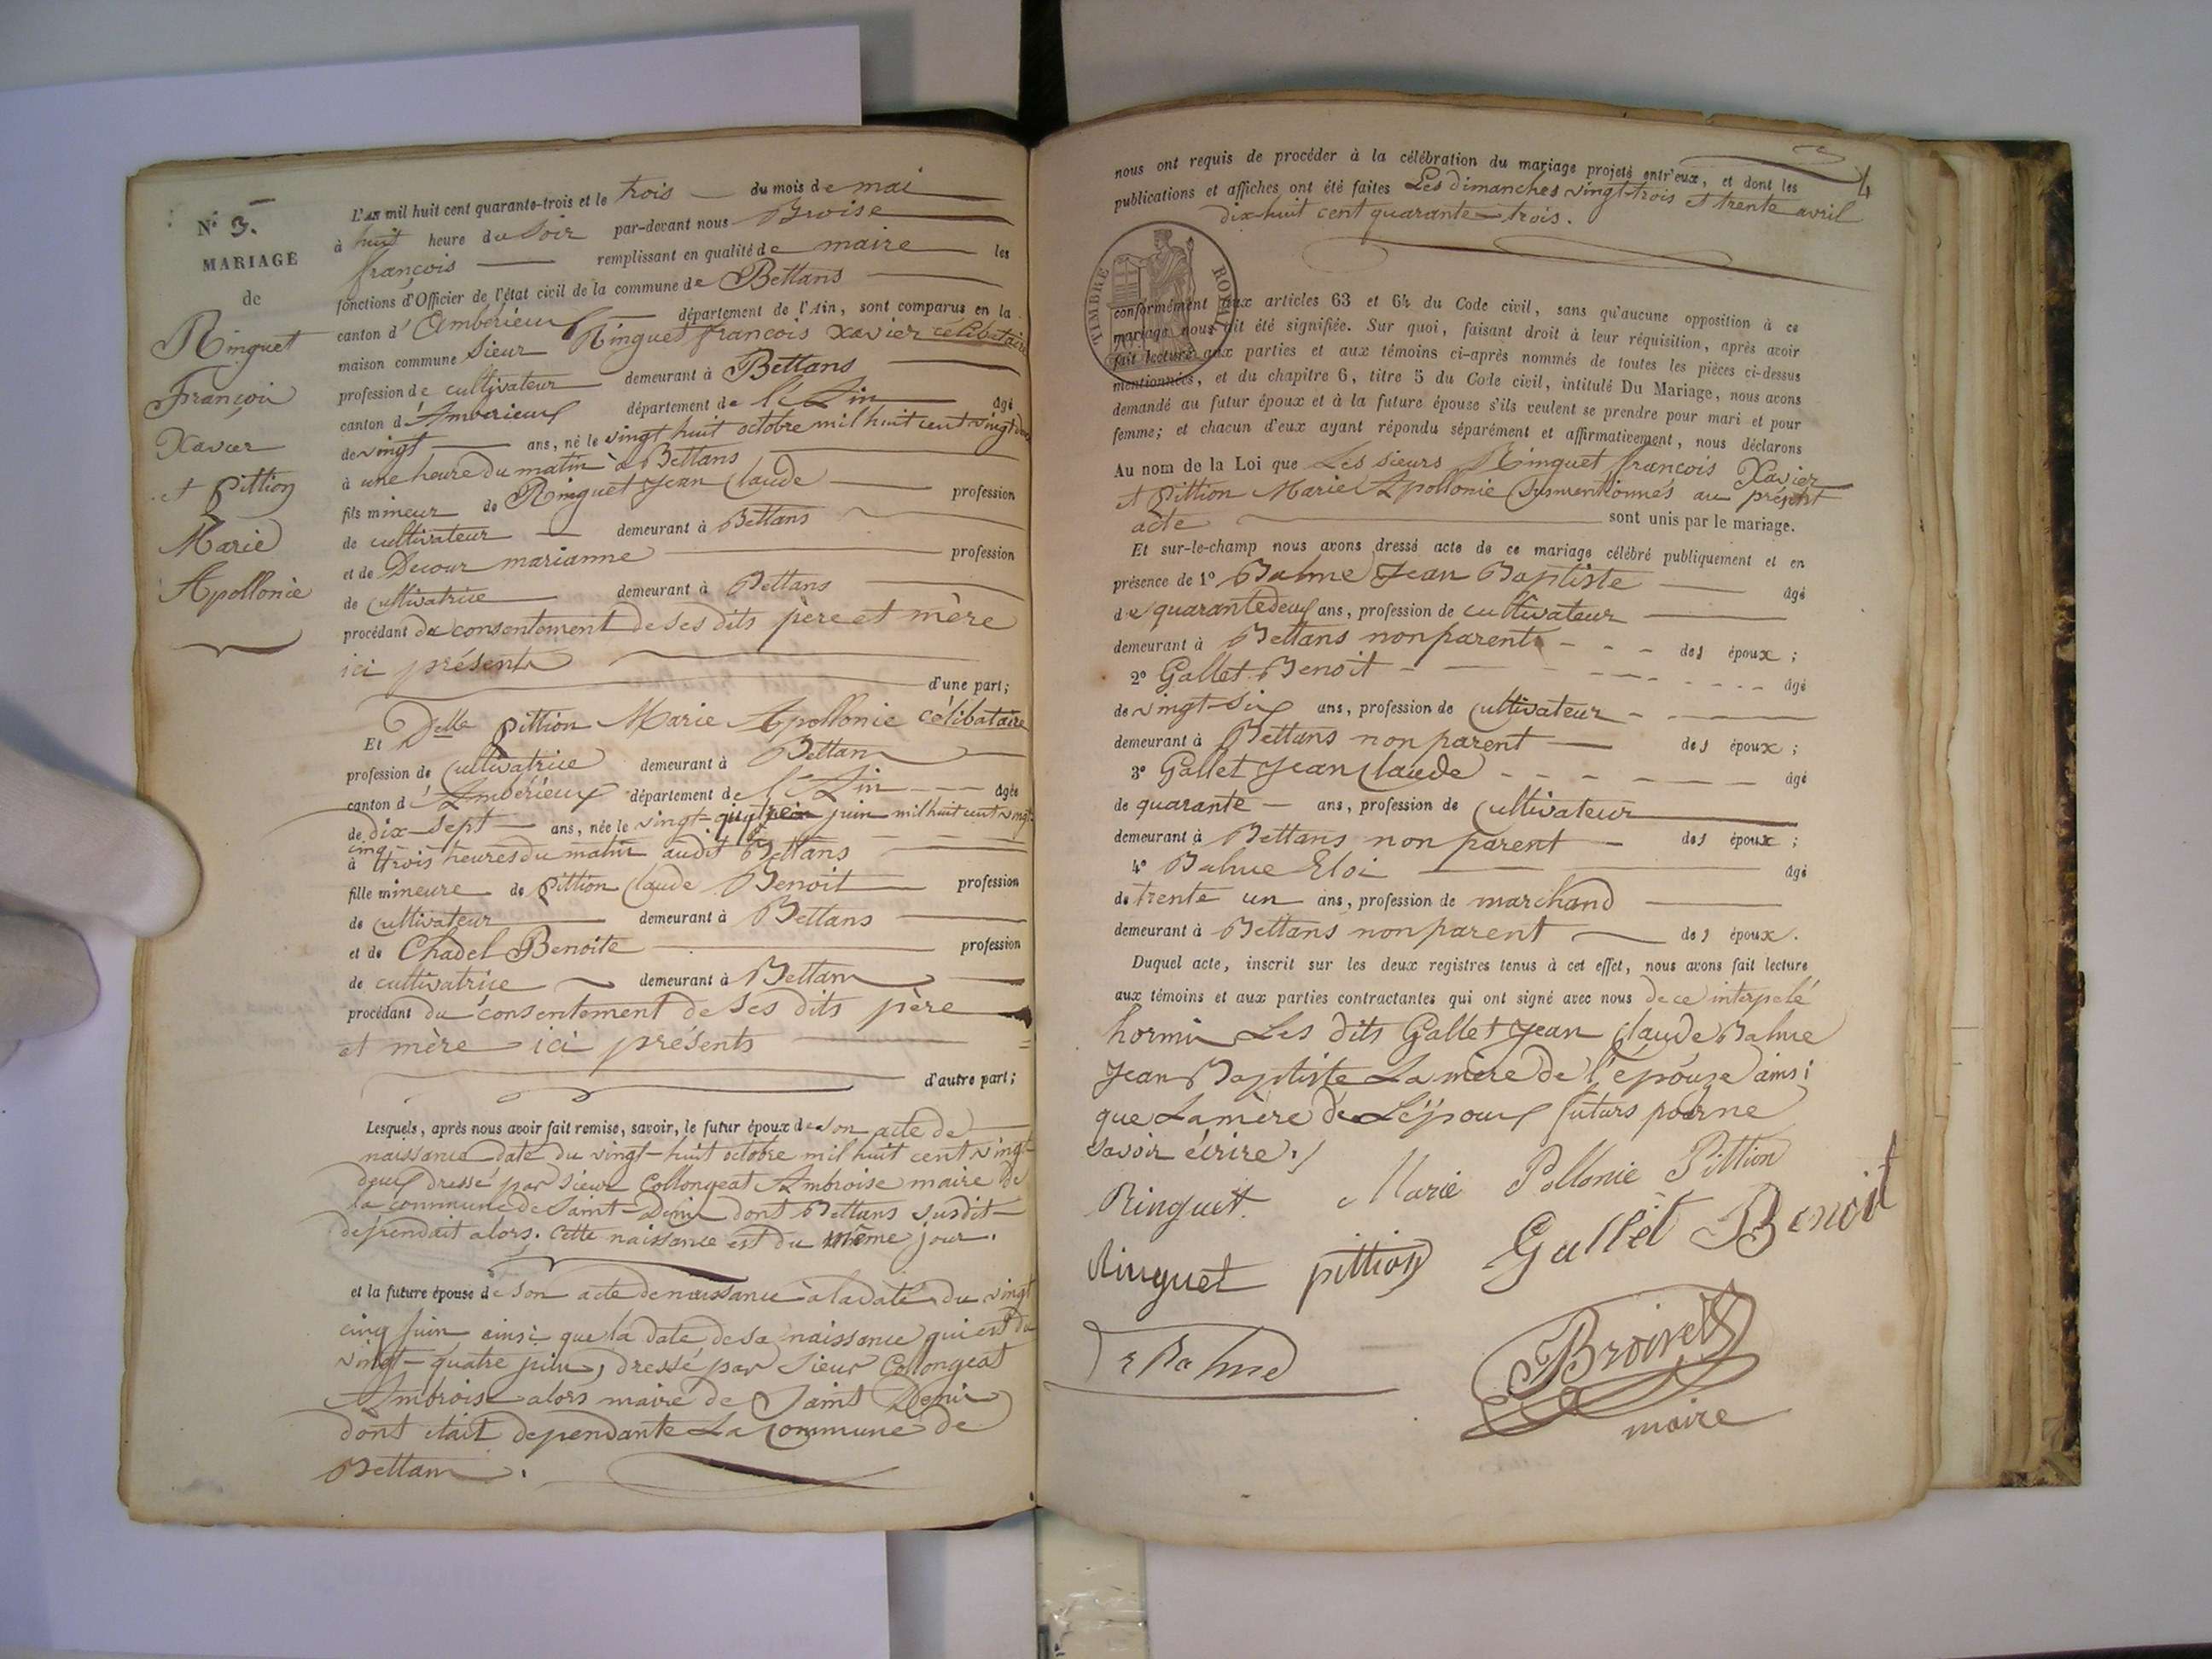 N° 3.
MARIAGE
de
Ringuet
François
Xavier
et Pittion
Marie
Apollonie
L'AN mil huit cent quarante-trois et le trois du mois de mai
à huit heure du Soir par-devant nous Broise
françois remplissant en qualité de maire les
fonctions d'Officier de l'état civil de la commune de Bettans
canton d'Ambérieux département de l'Ain, sont comparus en la
maison commune Sieur Ringuet françois Xavier célibataire
profession de cultivateur demeurant à Bettans
canton d'Ambérieux département de l'Ain âgé
de vingt ans, né le vingt huit octobre mil huit cent vingt deux
à une heure du matin à Bettans
fils mineur de Ringuet Jean Claude profession
de cultivateur demeurant à Bettans
et de Decour marianne profession
de Cultivatrice demeurant à Bettans
procédant du consentement de ses dits père et mère
ici présents
d'une part;
Et Delle Pittion Marie Apollonie célibataire
profession de Cultivatrice demeurant à Bettans
canton d'Ambérieux département de l'Ain âgée
de dix-sept ans, née le vingt- juin mil huit cent vingt
cinq
à trois heures du matin audit Bettans
fille mineure de Pittion Claude Benoit profession
de Cultivateur demeurant à Bettans
et de Chadel Benoite profession
de cultivatrice demeurant à Bettans
procédant du consentement de ses dits père
et mère ici présents
d'autre part;
Lesquels, après nous avoir fait remise, savoir, le futur époux de son acte de
naissance daté du vingt-huit octobre mil huit cent vingt
deux dressé par Sieur Collongeat Ambroise maire de
la commune de Saint-Denis dont Bettans susdit
dépendait alors. Cette naissance est du même jour.
et la future épouse de son acte de naissance à la date du vingt
cinq juin ainsi que la date de sa naissance qui est du
vingt-quatre juin, dressé par Sieur Collongeat
Ambroise alors maire de Saint Denis
dont était dependante La Commune de
Bettans.
4
nous ont requis de procéder à la célébration du mariage projeté entr'eux, et dont les
publications et affiches ont été faites Les dimanches vingt-trois et trente avril
dix-huit cent quarante-trois.
TIMBRE ROYAL
conformément aux articles 63 et 64 du Code civil, sans qu'aucune opposition à ce
mariage nous ait été signifiée. Sur quoi, faisant droit à leur réquisition, après avoir
fait lecture aux parties et aux témoins ci-après nommés de toutes les pièces ci-dessus
mentionnées, et du chapitre 6, titre 5 du Code civil, intitulé Du Mariage, nous avons
demandé au futur époux et à la future épouse s'ils veulent se prendre pour mari et pour
femme; et chacun d'eux ayant répondu séparément et affirmativement, nous déclarons
Au nom de la Loi que Les sieurs Ringuet françois Xavier
et Pittion Marie Apollonie susmentionnés au présent
acte sont unis par le mariage.
Et sur-le-champ nous avons dressé acte de ce mariage célébré publiquement et en
présence de 1° Balme Jean Baptiste âgé
de quarante deux ans, profession de cultivateur
demeurant à Bettans non parent des époux;
2° Gallet Benoit âgé
de vingt-six ans, profession de Cultivateur
demeurant à Bettans non parent des époux;
3° Gallet Jean Claude âgé
de quarante ans, profession de Cultivateur
demeurant à Bettans non parent des époux;
4° Balme Eloi âgé
de trente un ans, profession de marchand
demeurant à Bettans non parent des époux.
Duquel acte, inscrit sur les deux registres tenus à cet effet, nous avons fait lecture
aux témoins et aux parties contractantes qui ont signé avec nous de ce interpelé
hormis Les dits Gallet Jean Claude Balme
Jean Baptiste La mère de l'épouse ainsi
que La mère de L'époux futurs pour ne
savoir écrire./
Ringuet Marie Pollonie Pittion
Ringuet pittion Gallet Benoit
Balme Broise
maire